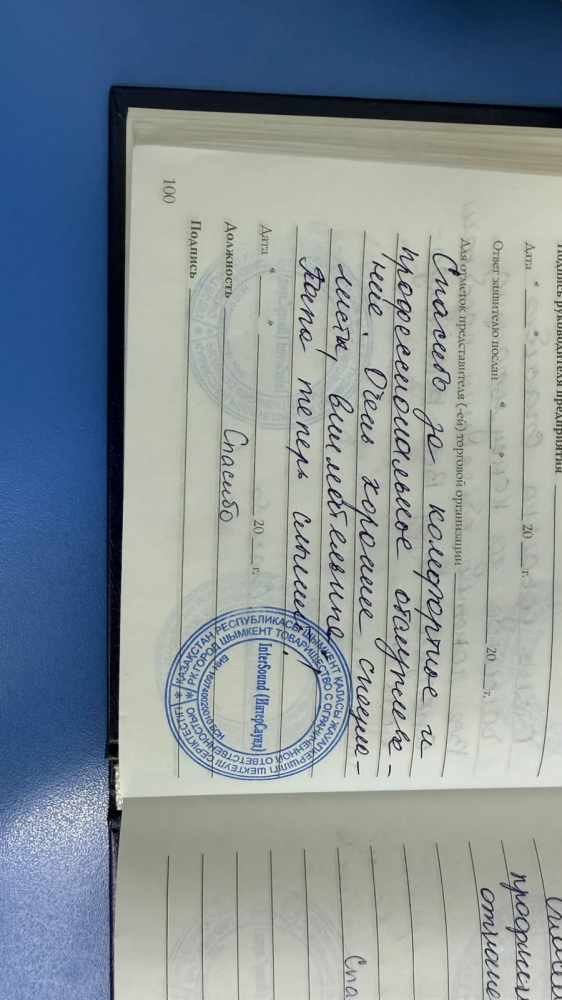 Подпись руководителя предприятия
Дата "___" ___ 20 __ г.
Ответ заявителю послан "___" ___ 20 __ г.
Для отметок представителя (-ей) торговой организации
Спасибо за комфортное и
профессиональное обслужива-
ние. Очень хорошие специа-
листы, внимательные
Папа теперь слышит!
Дата "___" ___ 20 __ г.
Должность Спасибо
Подпись
100
ҚАЗАҚСТАН РЕСПУБЛИКАСЫ ШЫМКЕНТ ҚАЛАСЫ ЖАУАПКЕРШІЛІГІ ШЕКТЕУЛІ СЕРІКТЕСТІГІ
РК ГОРОД ШЫМКЕНТ ТОВАРИЩЕСТВО С ОГРАНИЧЕННОЙ ОТВЕТСТВЕННОСТЬЮ
InterSound (ИнтерСаунд)
профес
Спа